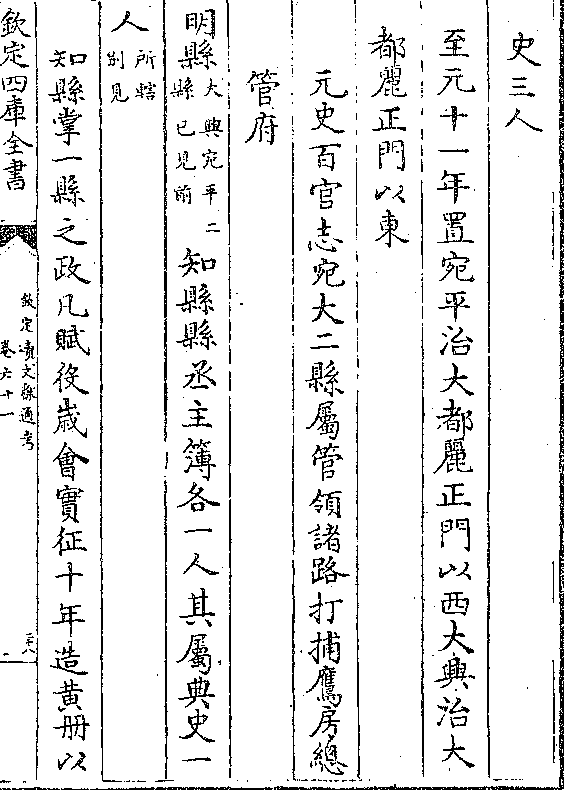 史三人
至元十一年置宛平治大都麗正門以西大興治大
都麗正門以東
元史百官志宛大二縣屬管領諸路打捕鷹房總
管府
明縣大興宛平二縣已見前知縣縣丞主簿各一人其屬典史一
人所轄別見
知縣掌一縣之政凡賦役歲會實征十年造黃册以
欽定四庫全書
欽定續文獻通考
卷六十一